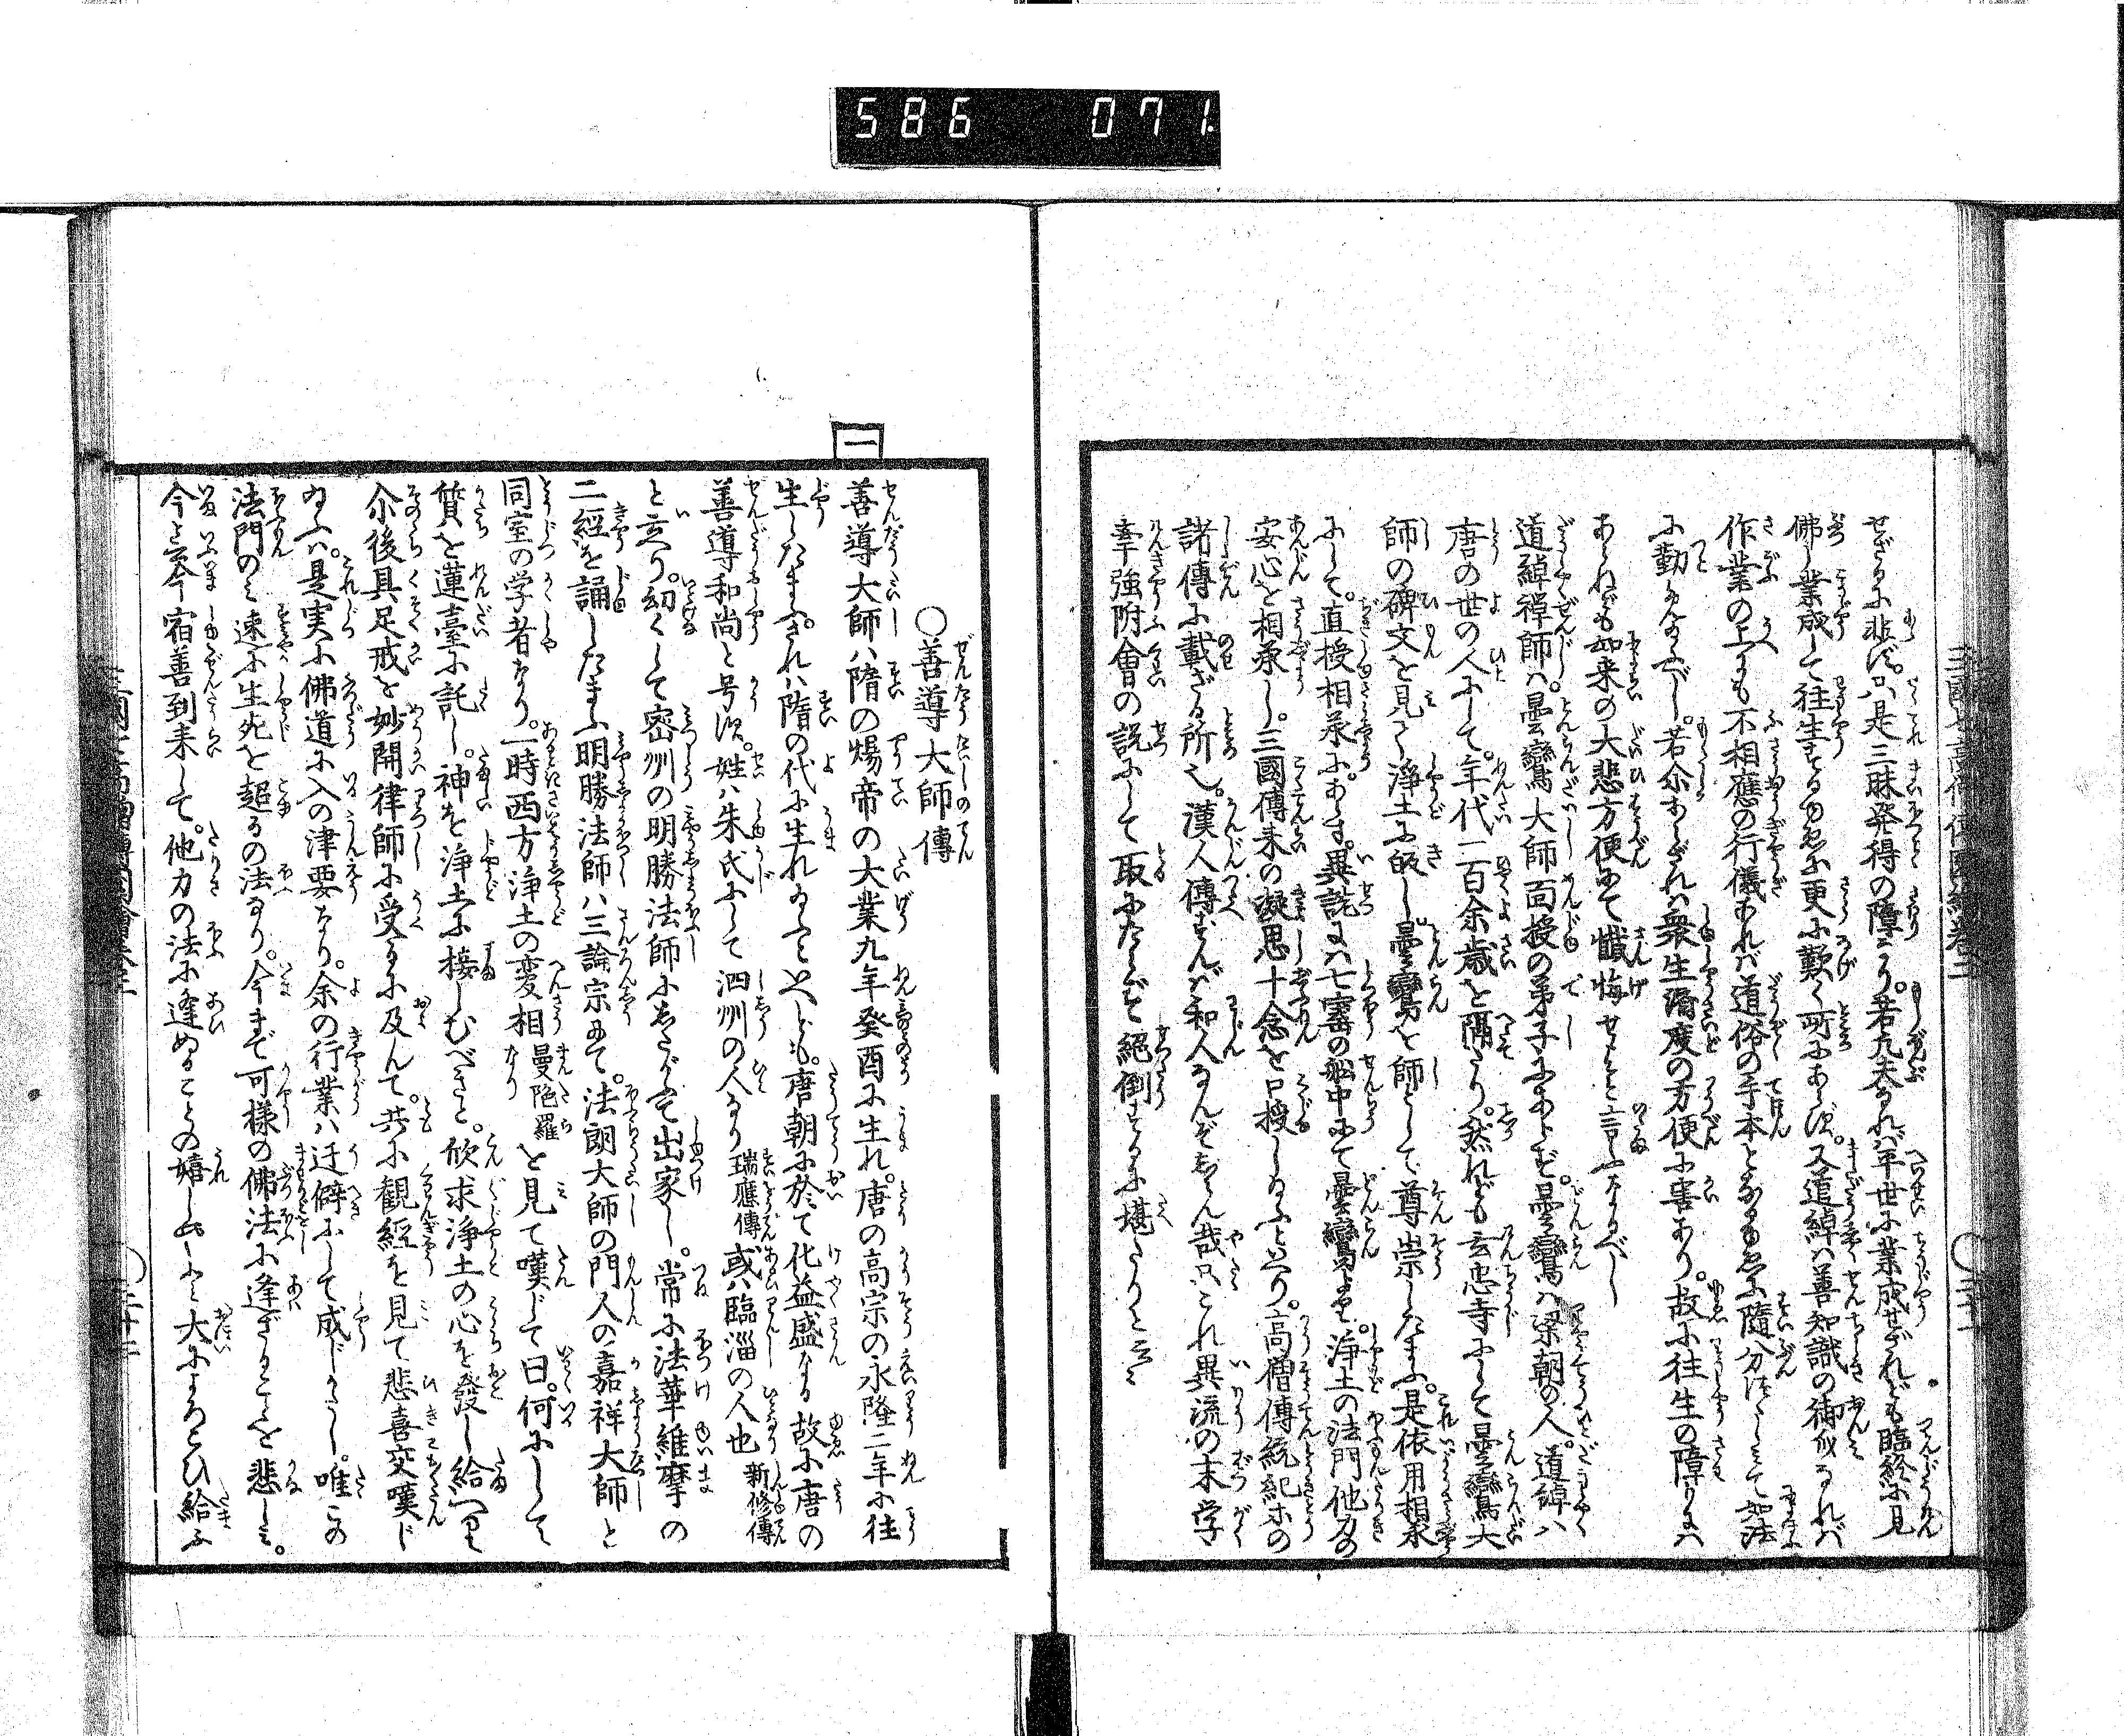 586 071
せざるに非ず。只是三昧発得の障り。若凡夫なれバ平世に業成せざれども臨終に見
佛し業成して往生するゆゑに更に歎く所にあらず。又道綽ハ善知識の御身なれバ
作業の上にも不相應の行儀あれバ道俗の手本となるゆゑに隨分つとめて如法
に勤むべし。若尒あらざれバ衆生濟度の方便に害あり。故に往生の障りにハ
あらねども如来の大悲方便にて懺悔せよと言ふなるべし
道綽禅師ハ曇鸞大師面授の弟子にあらず。曇鸞ハ梁朝の人。道綽ハ
唐の世の人にして。年代一百余歳を隔たり。然れども玄忠寺にて曇鸞大
師の碑文を見て浄土に皈し曇鸞を師として尊崇したまふ。是依用相承
にして。直授相承にあらず。異説にハ七寳の舩中にて曇鸞より。浄土の法門他力の
安心を相承し。三國傳来の凝思十念を口授しるふと云り。高僧傳統紀ホの
諸傳に載ざる所也。漢人傳ずんバ和人なんぞしらん哉只これ異流の末学
牽強附會の説にして取にたらずと絕倒するに堪たりと云々
○善導大師傳
一
善導大師ハ隋の煬帝の大業九年癸酉に生れ。唐の高宗の永隆二年に往
生したまふ。されハ隋の代に生れ給ふといへども。唐朝に於て化益盛なる故に唐の
善導和尚と号す。姓ハ朱氏にして泗州の人なり 瑞應傳 或ハ臨淄の人也 新修傳
と云り。幼くして密州の明勝法師にしたがひて出家し。常に法華維摩の
二經を誦したまふ明勝法師ハ三論宗にて。法朗大師の門人の嘉祥大師と
同室の学者なり。一時西方浄土の変相 曼陀羅なり を見て嘆じて曰。何にして
質を蓮臺に託し。神を浄土に接しむべきと。欣求浄土の心を發し給へり
尒後具足戒を妙開律師に受るに及んで。共に観經を見て悲喜交嘆じ
給ハ。是実に佛道に入の津要なり。余の行業ハ迂僻にして成じがたし。唯この
法門のミ速に生死を超るの法なり。今まで可様の佛法に逢ざることを悲しミ。
今と云今宿善到来して。他力の法に逢ぬることの嬉しやと大によろこひ給ふ